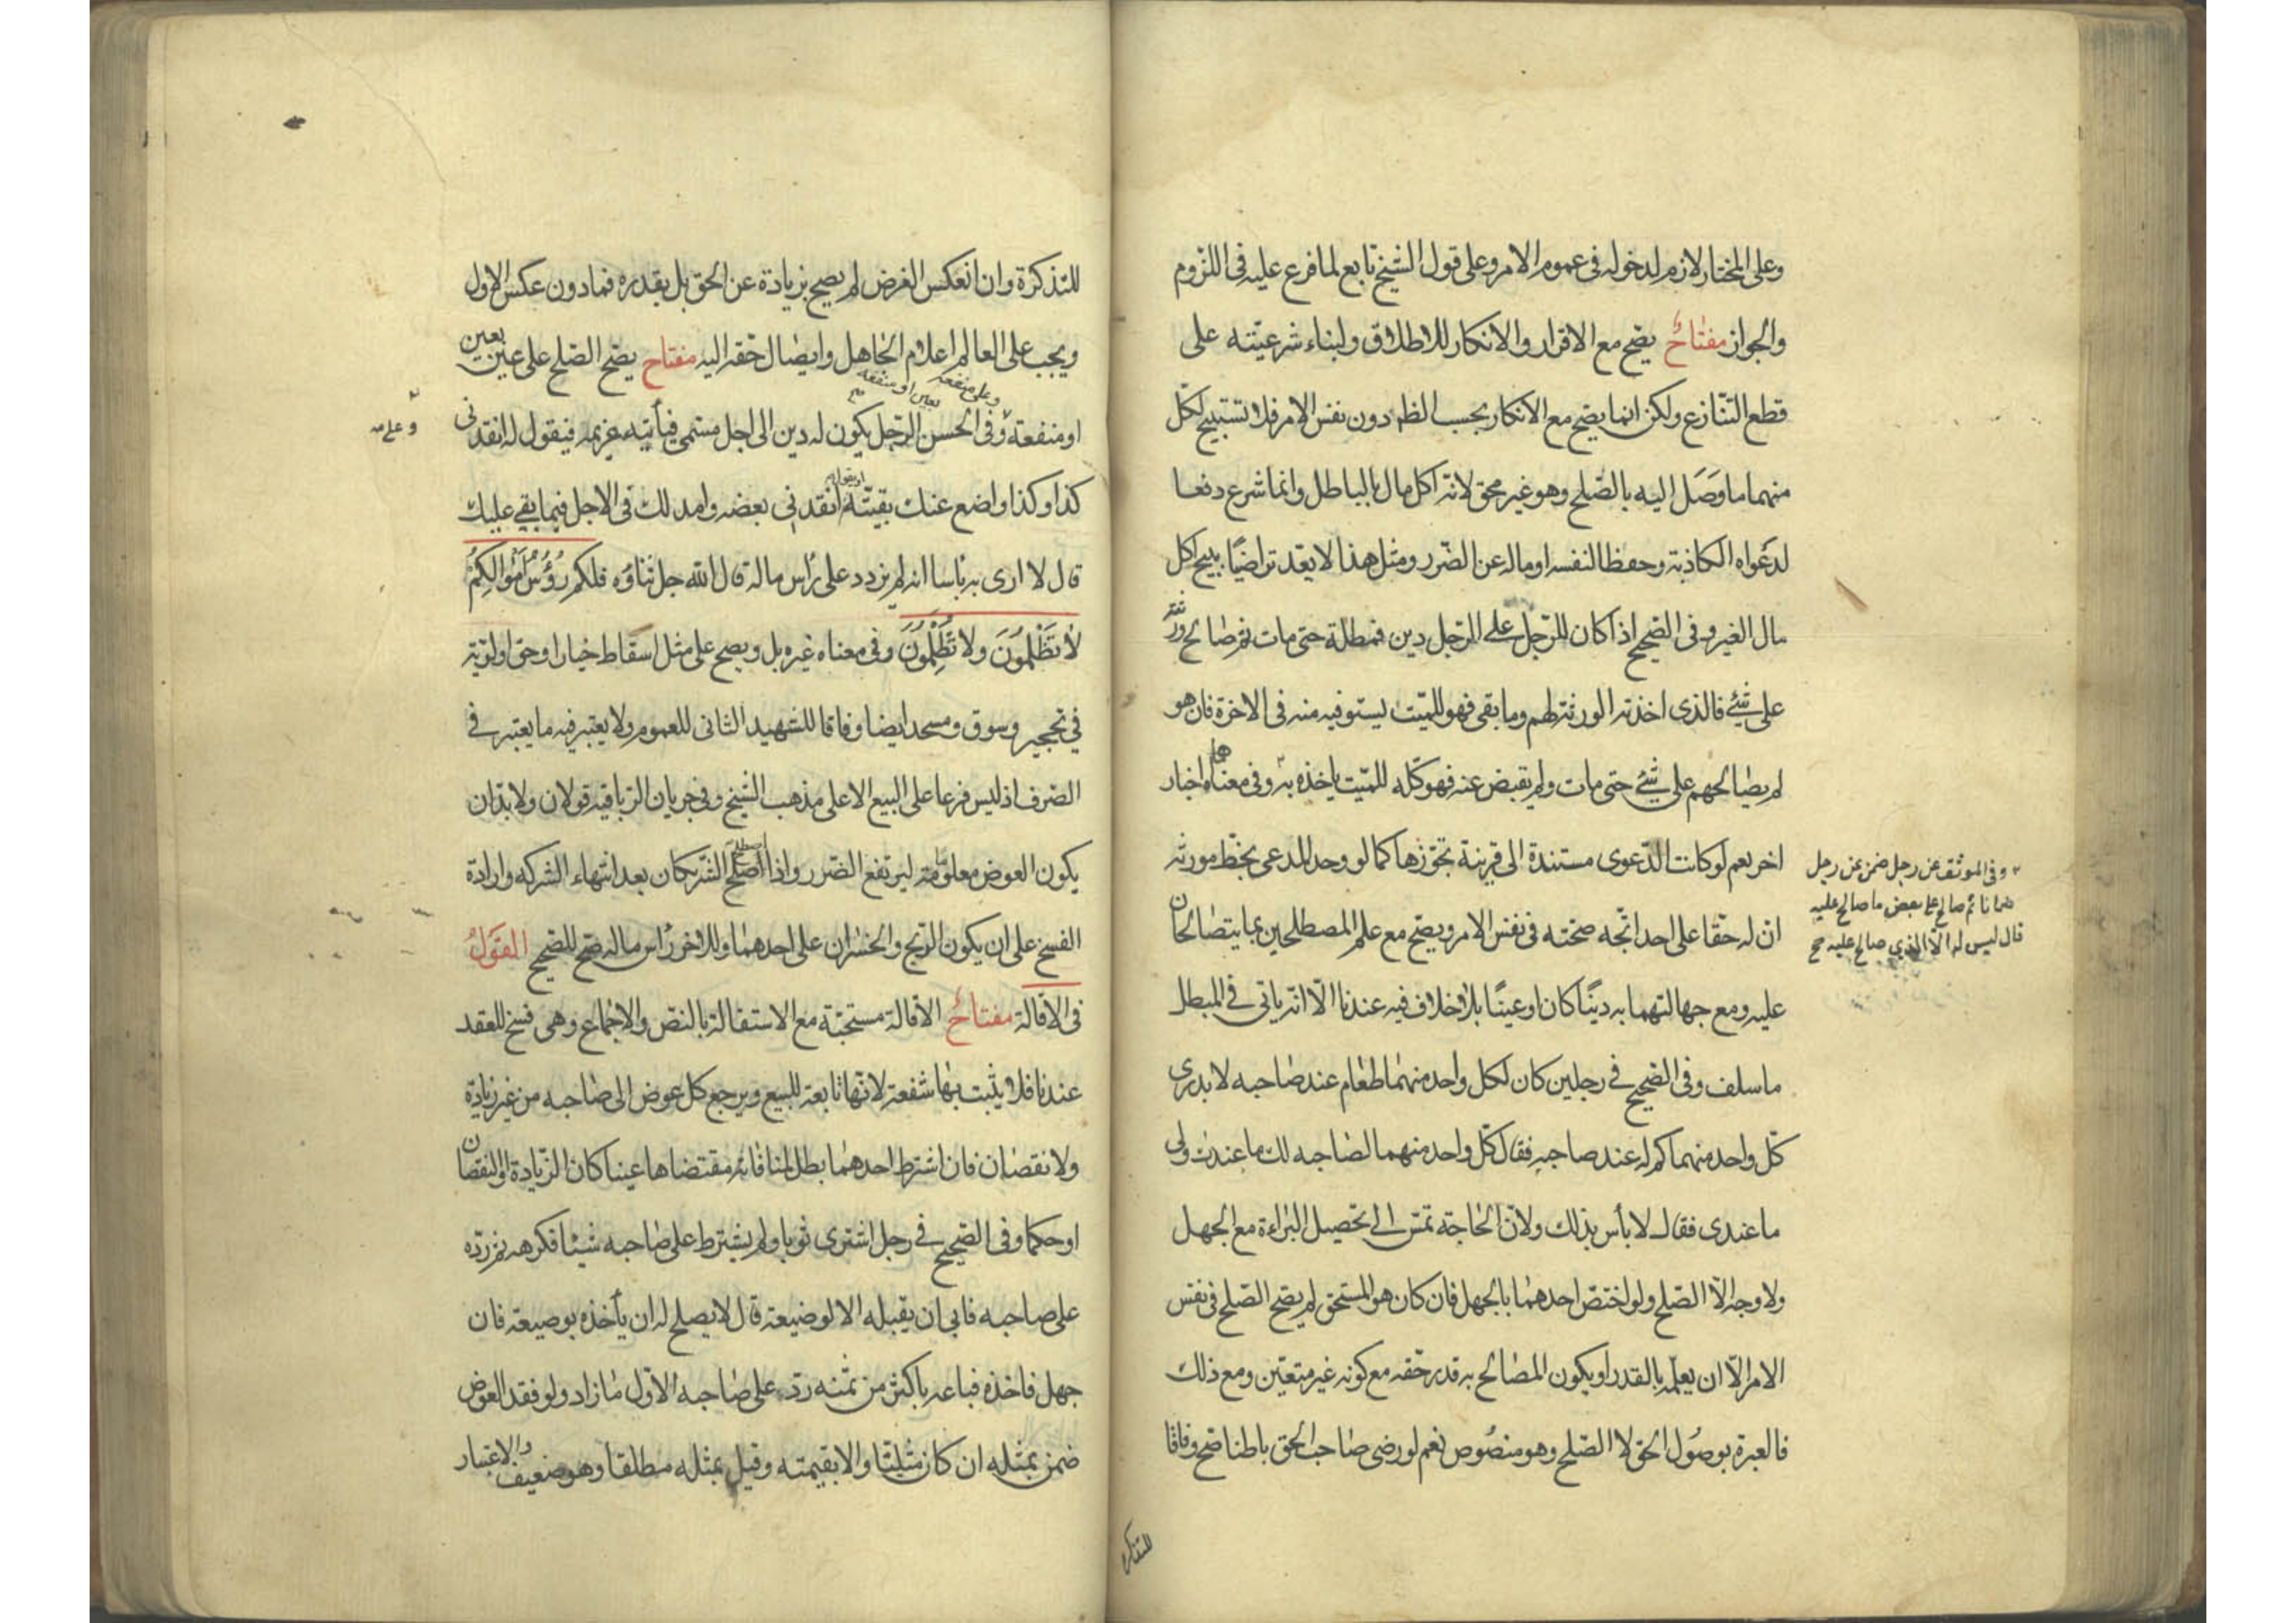 وعلى المختار لازم لدخوله في عموم الامر وعلى قول الشيخ تابع لما فرع عليه في اللزوم
والجواز مفتاح يصح مع الاقرار والانكار للاطلاق ولبناء شرعيته على
قطع التنازع ولكن انما يصح مع الانكار بحسب الظ دون نفس الامر فلا تستبيح لكل
منهما ما وَصَل اليه بالصّلح وهو غير محق لانه اكل مال بالباطل وانما شرع دفعا
لدعواه الكاذبة وحفظا لنفسه او ماله عن الضّرر ومثل هذا لا يعّد تراضيًا يبيح اكل
مال الغير وفي الصحيح اذا كان للرّجل على الرّجل دين فمطله حتى مات ثم صالح ورثته
على شئ فالذى اخذته الورثة لهم وما بقى فهو للميّت يستوفيه منه فى الاخرة فان هو
لم يصالحهم على شئ حتى مات ولم يقبض عنه فهو كلّه للميّت ياخذه به وفى معناهما اخبار
اخر نعم لو كانت الدّعوى مستندة الى قرينة تجوّزها كما لو وجد المدعى بخطّ مورثه
انّ له حقّا على احد اتّجه صحّته فى نفس الامر ويصّح مع علم المصطلحين بما يتصالحان
عليه ومع جهالتهما به دينًا كان او عينًا بلا خلاف فيه عندنا الّا انّه ياتى فى المبطل
ما سلف وفى الصّحيح فى رجلين كان لكل واحد منهما طعام عند صاحبه لا يدرى
كلّ واحد منهما كم له عند صاحبه فقال كلّ واحد منهما لصاحبه لك ما عندك ولى
ما عندى فقال لا بأس بذلك ولانّ الحاجة تمسّ الى تحصيل البراءة مع الجهل
ولا وجه الّا الصّلح ولو اختصّ احدهما بالجهل فان كان هو المستحق لم يصّح الصّلح فى نفس
الامر الّا ان يعلمه بالقدر او يكون المصالح به قدر حقّه مع كونه غير متعيّن ومع ذلك
فالعبرة بوصُول الحق لا الصّلح وهو منصُوص نعم لو رضى صاحب الحق باطنا صّح وفاقا
وفى الموثق عن رجل ضمن عن رجل
ضمانا ثم صالح على بعض ما صالح عليه
قال ليس له الّا الذي صالح عليه صح
للتذكرة
للتذكرة وان انعكس الفرض لم يصح بزيادة عن الحق بل بقدره فما دون عكس الاول
ويجب على العالم اعلام الجاهل وايصال حقّه اليه مفتاح يصّح الصّلح على عين بعين
وعلى منفعة بعين او منفعة
او منفعة وفى الحسن الرّجل يكون له دين الى اجل مسمّى فيأتيه غريمه فيقول له انقدنى
وعلى
كذا وكذا واضع عنك بقيّته او يقول انقدنى بعضه وامد لك فى الاجل فيما بقى عليك
قال لا ارى به باسا انه لم يزدد على راس ماله قال الله جل ثناؤه فلكم رؤُسُ أموالِكُم
لا تَظْلِمُونَ ولا تُظْلَمُونَ وفى معناه غيره بل ويصح على مثل اسقاط خيار او حق اولوية
فى تحجير وسوق ومسجد ايضا وفاقا للشهيد الثانى للعموم ولا يعتبر فيه ما يعتبر فى
الصّرف اذ ليس فرعا على البيع الا على مذهب الشيخ وفى جريان الرّبا فيه قولان ولا بدّ ان
يكون العوض معلومًا ليرتفع الضّرر واذا اصطلح الشّريكان بعد انتهاء الشركة وارادة
الفسخ على ان يكون الرّبح والخسران على احدهما وللاخر رأس ماله صّح للصّحيح القَولُ
فى الاقالة مفتاح الاقالة مستحبّة مع الاستقالة بالنصّ والاجماع وهى فسخ للعقد
عندنا فلا يثبت بها شفعة لانّها تابعة للبيع ويرجع كل عوض الى صاحبه من غير زيادة
ولا نقصان فان اشترط احدهما بطل لمنافاته مقتضاها عينا كان الزّيادة او النقصان
او حكما وفى الصّحيح فى رجل اشترى ثوبا ولم يشترط على صاحبه شيئا فكرهه ثم ردّه
على صاحبه فابى ان يقبله الا بوضيعة قال لا يصلح له ان يأخذه بوضيعة فان
جهل فاخذه فباعه باكثر من ثمنه ردّ على صاحبه الاوّل ما زاد ولو فقد العوض
ضمن بمثله ان كان مثليّا والا بقيمته وقيل بمثله مطلقا وهو ضعيف والاعتبار